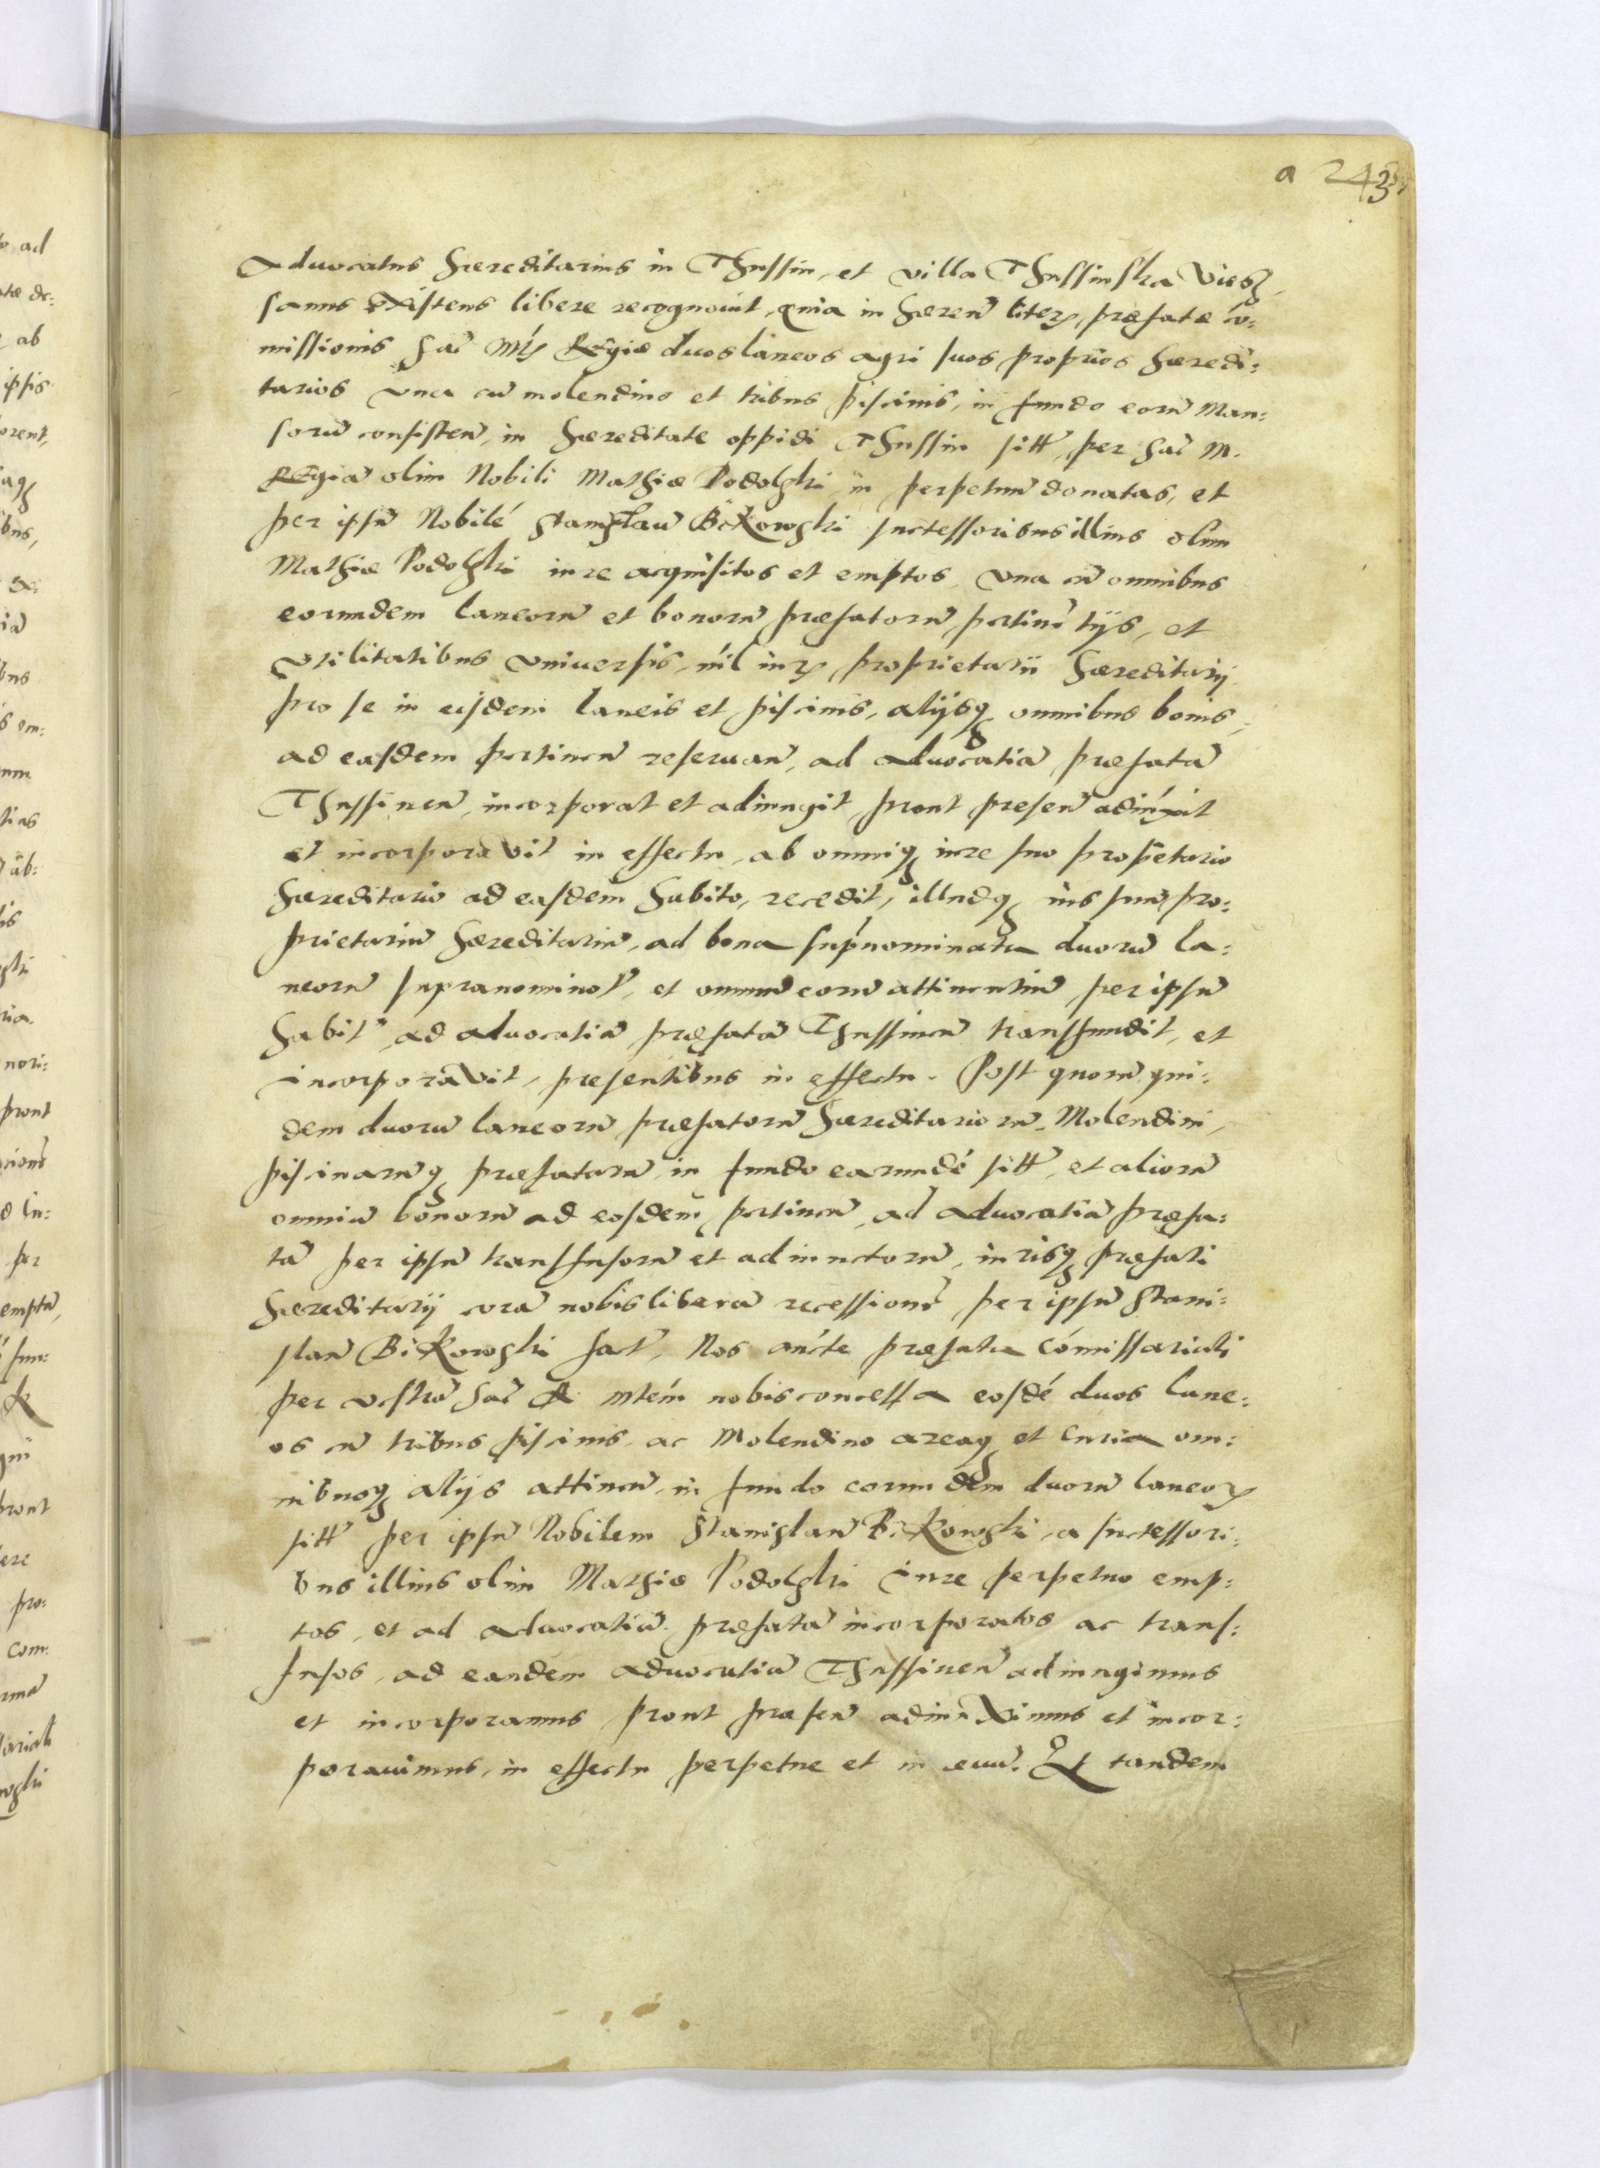 a 243
Advocatus hæreditarius in Thussin, et villa Thussinska Viesz,
sanus existens libere recognovit, quia in hæren̄ liter, præfatæ cō:
missionis Sac̄ Mtis Regiæ duos laneos agri suos proprios hæredi:
tarios una cū molendino et tribus piscinis, in fundo eorū Man:
sorū consisten̄, in hæreditate oppidi Thussin sitt, per Sac̄ M.
Regiā olim Nobili Mathiæ Podolski in perpetuū donatas, et
per ipsū Nobilé Stanislaū Bikowski successoribus illius olim
Mathiæ Podolski iure acquisitos et emptos una cū omnibus
eorumdem laneorū et bonorū præfatorū, ptinē tijs, et
utilitatibus universis, nil iur proprietarii hæreditarij
pro se in eisdem laneis et piscinis, alijsq omnibus bonis,
ad easdem pertinen̄ reseruan̄, ad advocatiā præfatā
Thussinen̄, incorporat et adiungit prout presen̄ adiūxit
et incorporavit in effectu, ab omniq iure suo propietario
hæreditario ad easdem habito, recedit, illudq ius suū pro:
prietariū hæreditariū, ad bona supnominata duorū la:
neorū supranominat, et omniū eorū attinentiū per ipsū
habit, ad advocatiā præfatā Thussinen̄ transfundit, et
incorporavit, presentibus in effectu. Post quorū qui:
dem duorū laneorū præfatorū hæreditariorū, Molendini,
piscinarūq præfatarū, in fundo earumdé sitt, et aliorū
omniū bonorū ad eosdem pertinen̄, ad advocatiā præfa:
tā per ipsū transfusorū et adiunctorū, iurisq præfati
hæreditarij corā nobis liberā recessionē per ipsū Stani:
slaū Bikowski fact, Nos aucte præfata cómissariali
per vestrā Sac̄ R Mtém nobis concessa eosdé duos lane:
os cū tribus piscinis, ac Molendino areaq et curia om:
nibusq alijs attinen̄, in fundo eorumdem duorū laneor
sitt per ipsū Nobilem Stanislaū Bikowski, a successori:
bus illius olim Mathiæ Podolski iure perpetuo emp:
tos, et ad advocatiā præfatā incorporatos ac transf:
fusos, ad eandem advocatiā Thussinen̄ adiungimus
et incorporamus prout præsen̄ adiunximus et incor:
porauimus, in effectu perpetue et in ævū. Et tandem